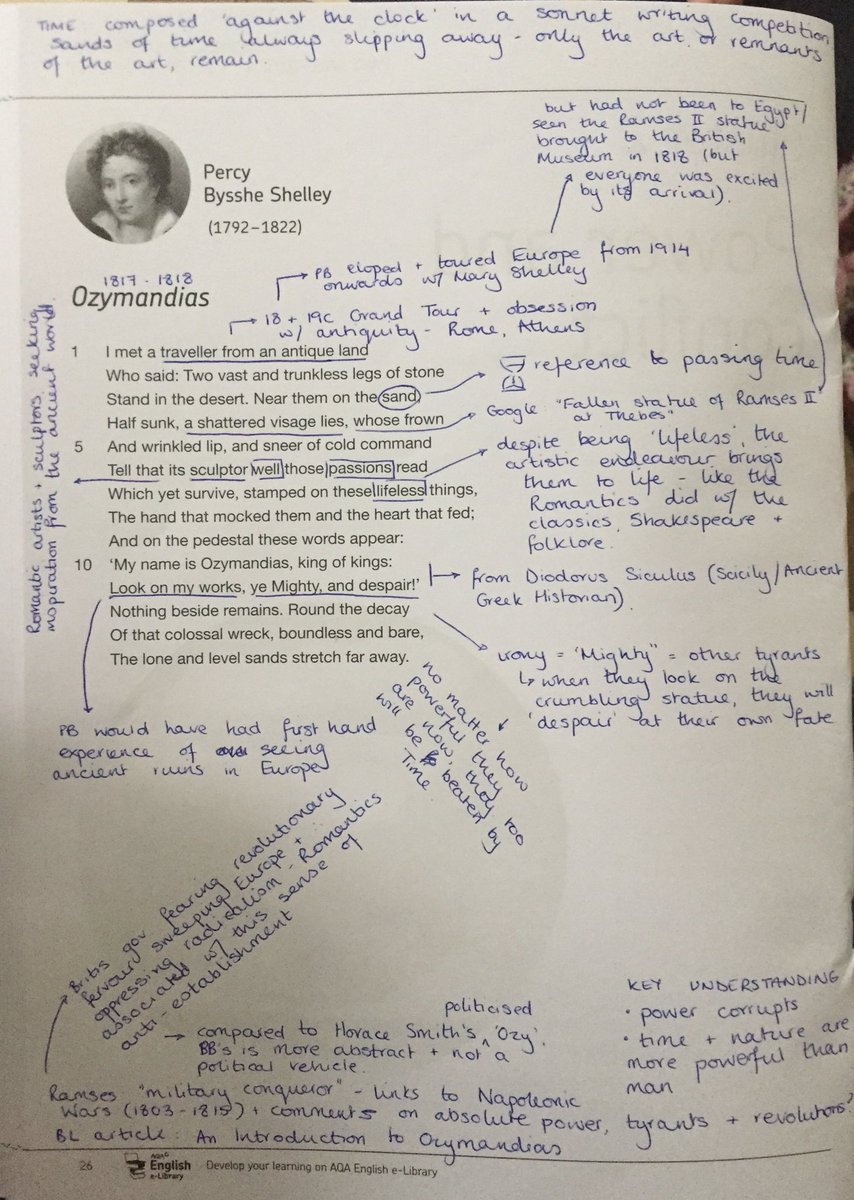 TIME composed 'against the clock' in a sonnet writing competition
sands of time always slipping away - only the art, or remnants
of the art, remain.
but had not been to Egypt/
seen the Ramses II statue
brought to the British
Museum in 1818 (but
everyone was excited
by its arrival).
Percy
Bysshe Shelley
(1792–1822)
1817 - 1818
Ozymandias
PB eloped + toured Europe from 1914
onwards w/ Mary Shelley
18 + 19c Grand Tour + obsession
w/ antiquity - Rome, Athens
Romantic artists + sculptors seeking
inspiration from the ancient world.
1 I met a traveller from an antique land
Who said: Two vast and trunkless legs of stone
Stand in the desert. Near them on the sand,
Half sunk, a shattered visage lies, whose frown
5 And wrinkled lip, and sneer of cold command
Tell that its sculptor well those passions read
Which yet survive, stamped on these lifeless things,
The hand that mocked them and the heart that fed;
And on the pedestal these words appear:
10 'My name is Ozymandias, king of kings:
Look on my works, ye Mighty, and despair!'
Nothing beside remains. Round the decay
Of that colossal wreck, boundless and bare,
The lone and level sands stretch far away.
reference to passing time
Google "Fallen statue of Ramses II
at Thebes"
despite being 'lifeless', the
artistic endeavour brings
them to life - like the
Romantics did w/ the
classics, Shakespeare +
folklore.
from Diodorus Siculus (Scicily/Ancient
Greek Historian).
irony = 'Mighty" = other tyrants
when they look on the
crumbling statue, they will
'despair' at their own fate
no matter how
powerful they
are now, they too
will be beaten by
Time
PB would have had first hand
experience of seeing
ancient ruins in Europe
Britis gov fearing revolutionary
fervour sweeping Europe +
oppressing radicalism - Romantics
associated w/ this sense of
anti-establishment
politicised
compared to Horace Smith's ^ 'Ozy',
PB's is more abstract + not a
political vehicle.
KEY UNDERSTANDING
• power corrupts
• time + nature are
more powerful than
man
Ramses "military conqueror" - links to Napoleonic
Wars (1803-1815) + comments on absolute power, tyrants + revolutions?
BL article: An Introduction to Ozymandias
26 AQA English e-Library Develop your learning on AQA English e-Library